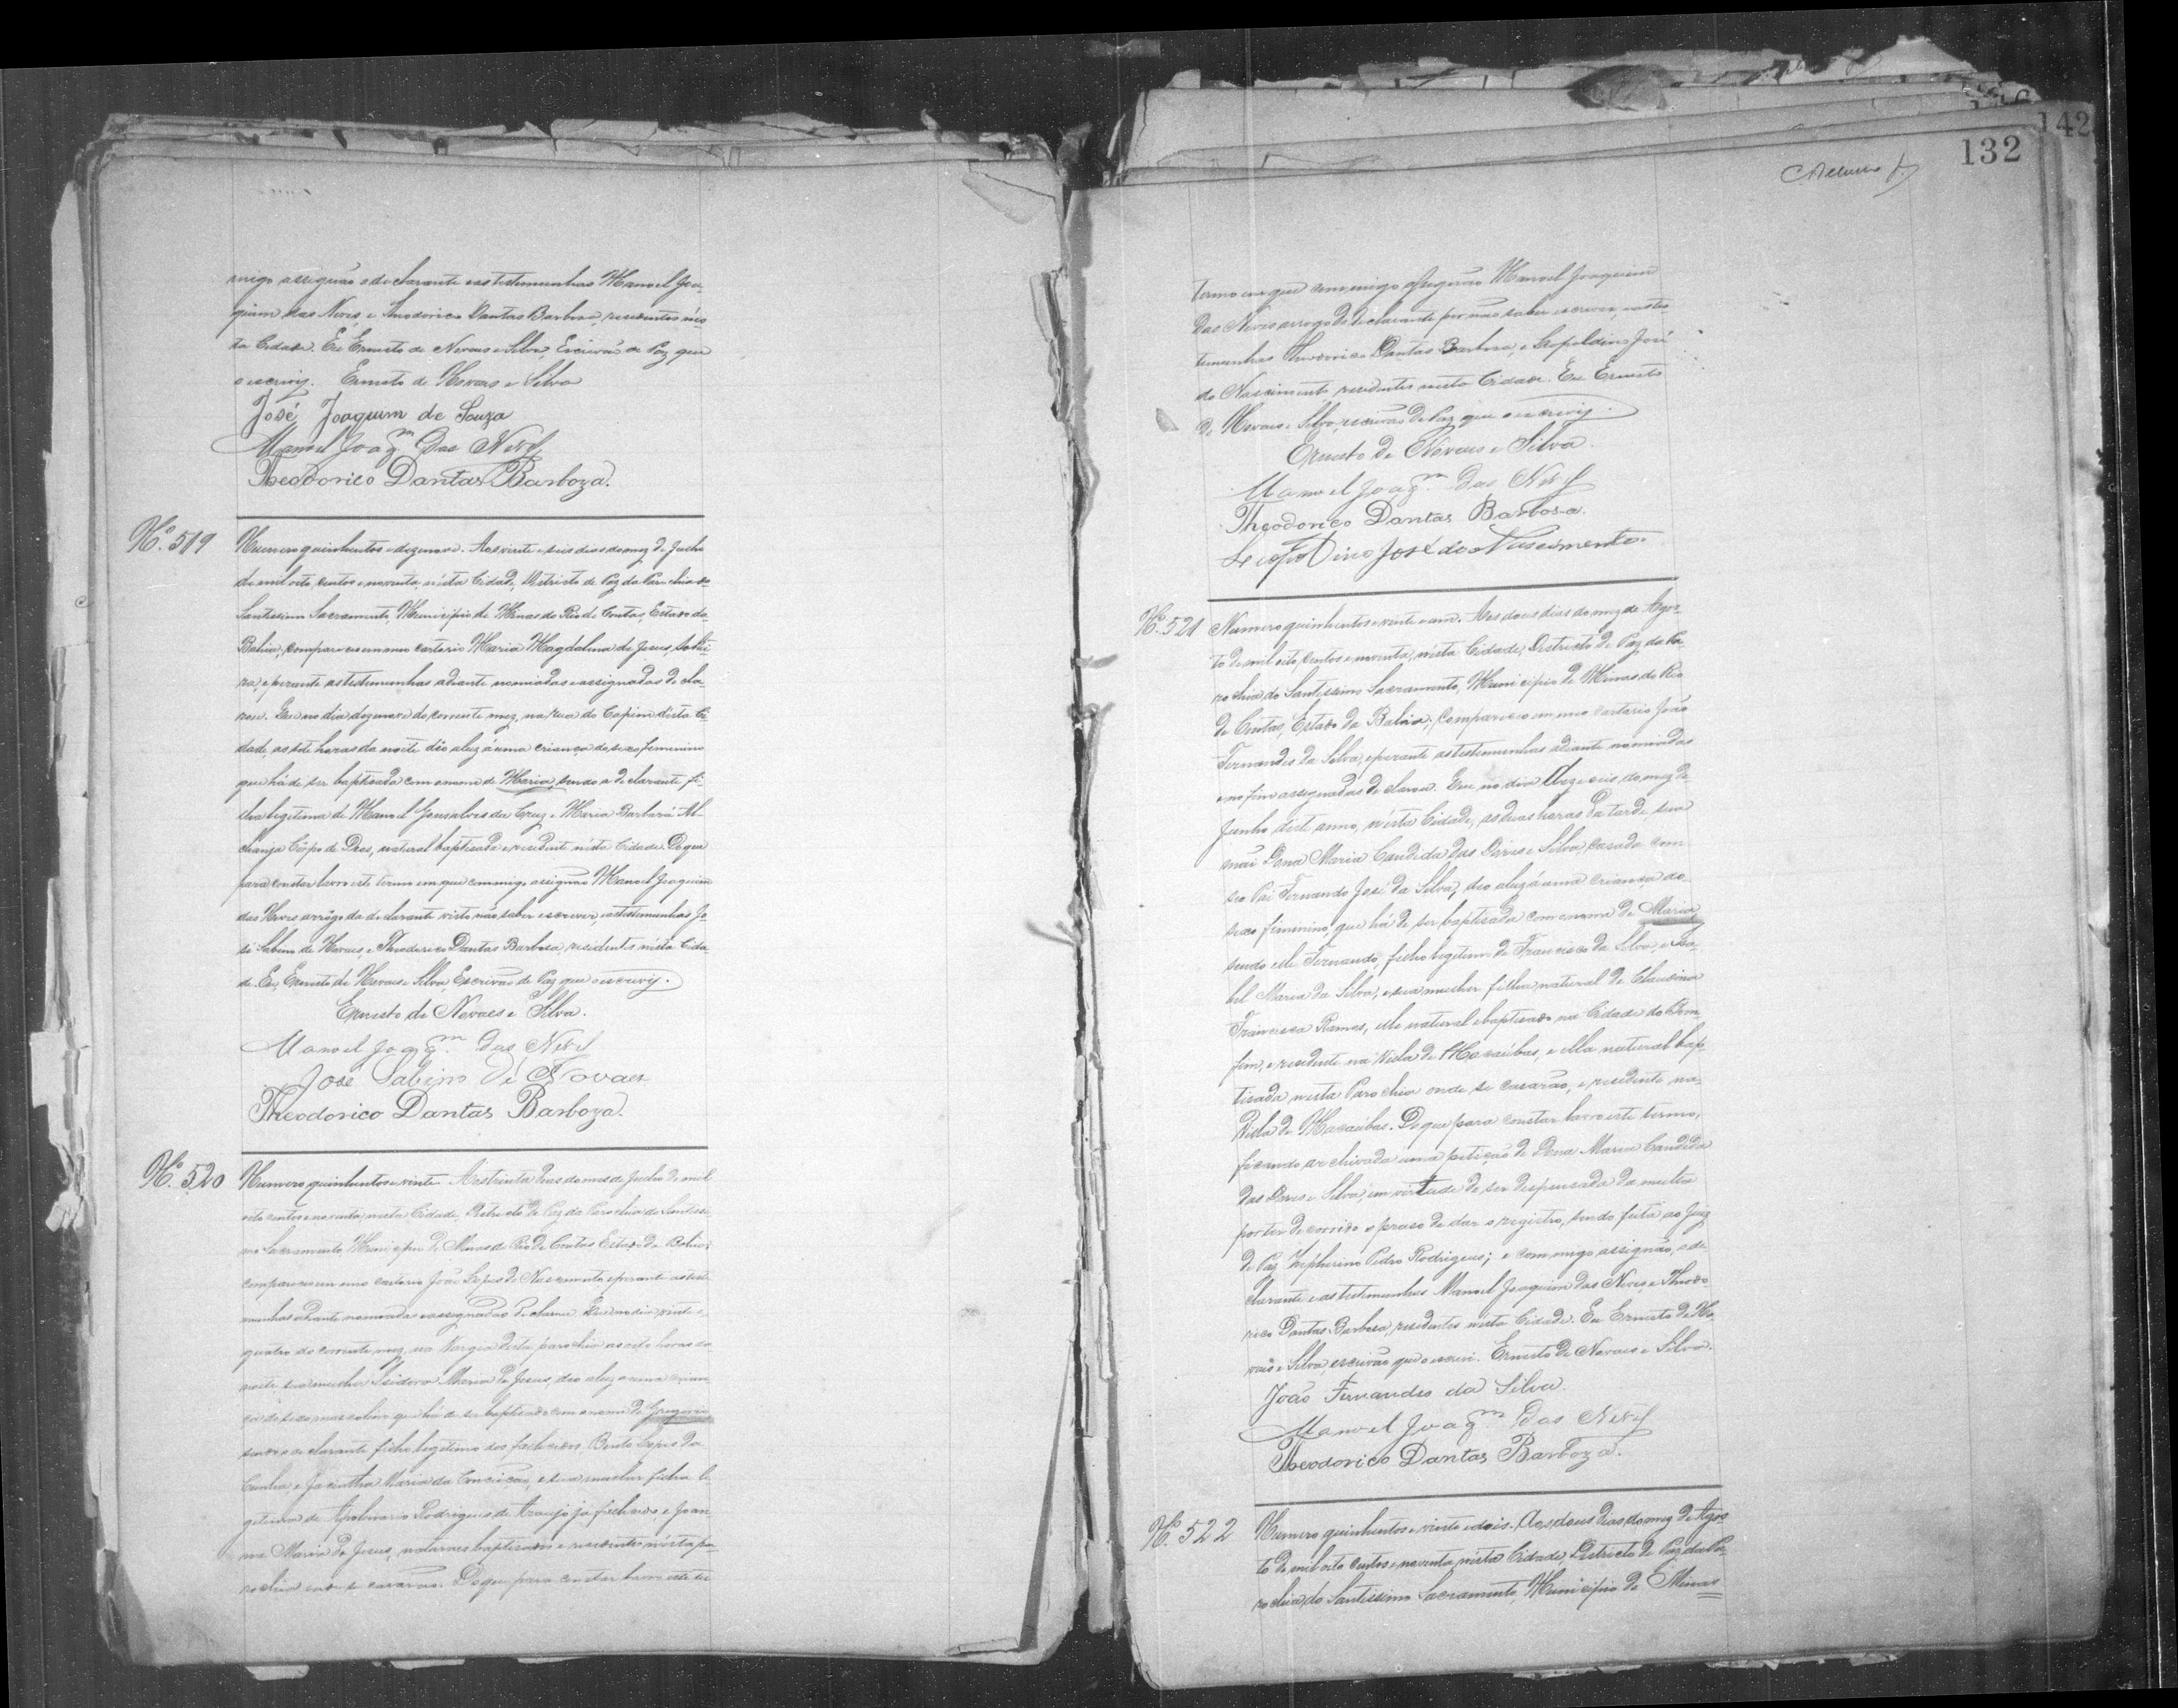 migo assignão o declarante e as testemunhas Manoel Joa-
quim das Neves, e Theodorico Dantas Barbosa, residentes nes-
ta Cidade. Eu Ernesto de Novaes e Silva, Escrivão de Paz, que
o escrivy. Ernesto de Novaes e Silva
José Joaquim de Souza
Manoel Joaqm das Neves
Theodorico Dantas Barboza.
Nº. 519
Numero quinhentos e dezenove. Aos vinte e seis dias do mez de Julho
de mil oito centos e noventa, nésta Cidade, Districto de Paz da Parochia do
Santissimo Sacramento, Municipio de Minas do Rio de Contas, Estado da
Bahia, compareceu em meu cartorio Maria Magdalena de Jesus, soltei-
ra, e perante as testemunhas adiante nomiadas e assignadas decla-
rou. Que no dia dezenove do corrente mez, na rua do Capim désta Ci-
dade, as sete horas da noite dêo a luz á uma criança do sexo femenino
que há de ser baptisada com o nome de Maria, sendo a declarante fi-
lha legitima de Manoel Gonsalves da Cruz, e Maria Barbará
Côrpo de Deos, natural baptisada e residente nésta Cidade. Do que
para constar lavro este termo em que commigo assignão Manoel Joaquim
das Neves arrôgo da declarante visto não saber escrever, e as testemunhas Jo-
sé Sabino de Novaes, e Theodorico Dantas Barbosa, residentes nésta Cida-
de. Eu, Ernesto de Novaes e Silva, Escrivão de Paz que o escrivy.
Ernesto de Novaes e Silva.
Manoel Joaqm. das Neves
José Sabino de Novaes
Theodorico Dantas Barboza.
Nº. 520
Numero quinhentos e vinte. Aos trinta dias do mes de Julho de mil
oito centos e noventa, nesta Cidade, Districto de Paz da Parochia do Santissi-
mo Sacramento, Municipio de Minas do Rio de Contas Estado da Bahia,
compareceu em meu cartorio João Lopes do Nascimento, e perante as teste-
munhas adiante nomiadas e assignadas declarou. Que no dia vinte e
quatro do corrente mez, na Vargea désta parochia as oito horas da
noite, sua mulher Isidora Maria de Jesus, dêo a luz a uma crian-
ça do sexo masculino que há de ser baptisado com o nome de Gregorio
sendo o declarante filho legitimo dos falecidos Bento Lopes da
Cunha e Jacintha Maria da Conceição, e sua mulher filha le-
getima de Apolinario Rodrigues de Araujo já falecido, e Joan-
na Maria de Jesus, naturaes baptisados e residentes nésta pa-
rochia onde se casarão. Do que para constar lavro este ter
132
142
termo em que commigo assignão Manoel Joaquim
das Neves arrogo do declarante por não saber escrever, e as tes-
temunhas Theodorico Dantas Barbosa, e Leopoldino José
do Nascimento, residentes nesta Cidade. Eu Ernesto
de Novaes e Silva, escrivão de Paz que o escrivy.
Ernesto de Novaes e Silva.
Manoel Joaqm. das Neves
Theodorico Dantas Barbosa.
Leopoldino José do Nascimento.
Nº. 521
Numero quinhentos e vinte e um. Aos dous dias do mez de Agos-
to de mil oito centos e noventa, nésta Cidade, Districto de Paz da Pa-
rochia do Santissimo Sacramento, Municipio de Minas do Rio
de Contas, Estado da Bahia, Compareceo em meo cartorio João
Fernandes da Silva, e perante as testemunhas adiante nomiadas
e no fim assignadas declarou. Que no dia deze seis do mez de
Junho deste anno, nésta Cidade, as duas horas da tarde, sua
mãi Dona Maria Candida das e Silva, casada com
seo Pai Fernando José da Silva, deo a luz á uma criança do
sexo feminino, que há de ser baptisada com o nome de Maria,
sendo elle Fernando, filho legitimo de Francisco da Silva, e Isa-
bel Maria da Silva, e sua mulher filha natural de Claudina
Francisca Ramos, elle natural e baptisado na Cidade do Bom-
fim, e residente na Villa de Macaúbas, e ella natural bap-
tisada nesta Parochia onde se casarão, e residente na
Villa de Macaúbas. Do que para constar lavro este termo,
ficando archivada uma petição de Dona Maria Candida
das e Silva, em virtude de ser despensada da multa
por ter decorrido o praso de dar o registro, sendo feita ao Juiz
de Paz Zepherino Pedro Rodrigues; e com migo assignão, o de-
clarante e as testemunhas Manoel Joaquim das Neves, e Theodo-
rico Dantas Barbosa, residentes nésta Cidade. Eu Ernesto de No-
vaes e Silva, escrivão que o escrevi. Ernesto de Novaes e Silva.
João Fernandes da Silva.
Manoel Joaqm das Neves
Theodorico Dantas Barboza.
Nº. 522
Numero quinhentos e vinte e dois. Aos dous dias do mez de Agos-
to de mil oito centos e noventa, nésta Cidade, Districto de Paz da Pa-
rochia do Santissimo Sacramento, Municipio de Minas